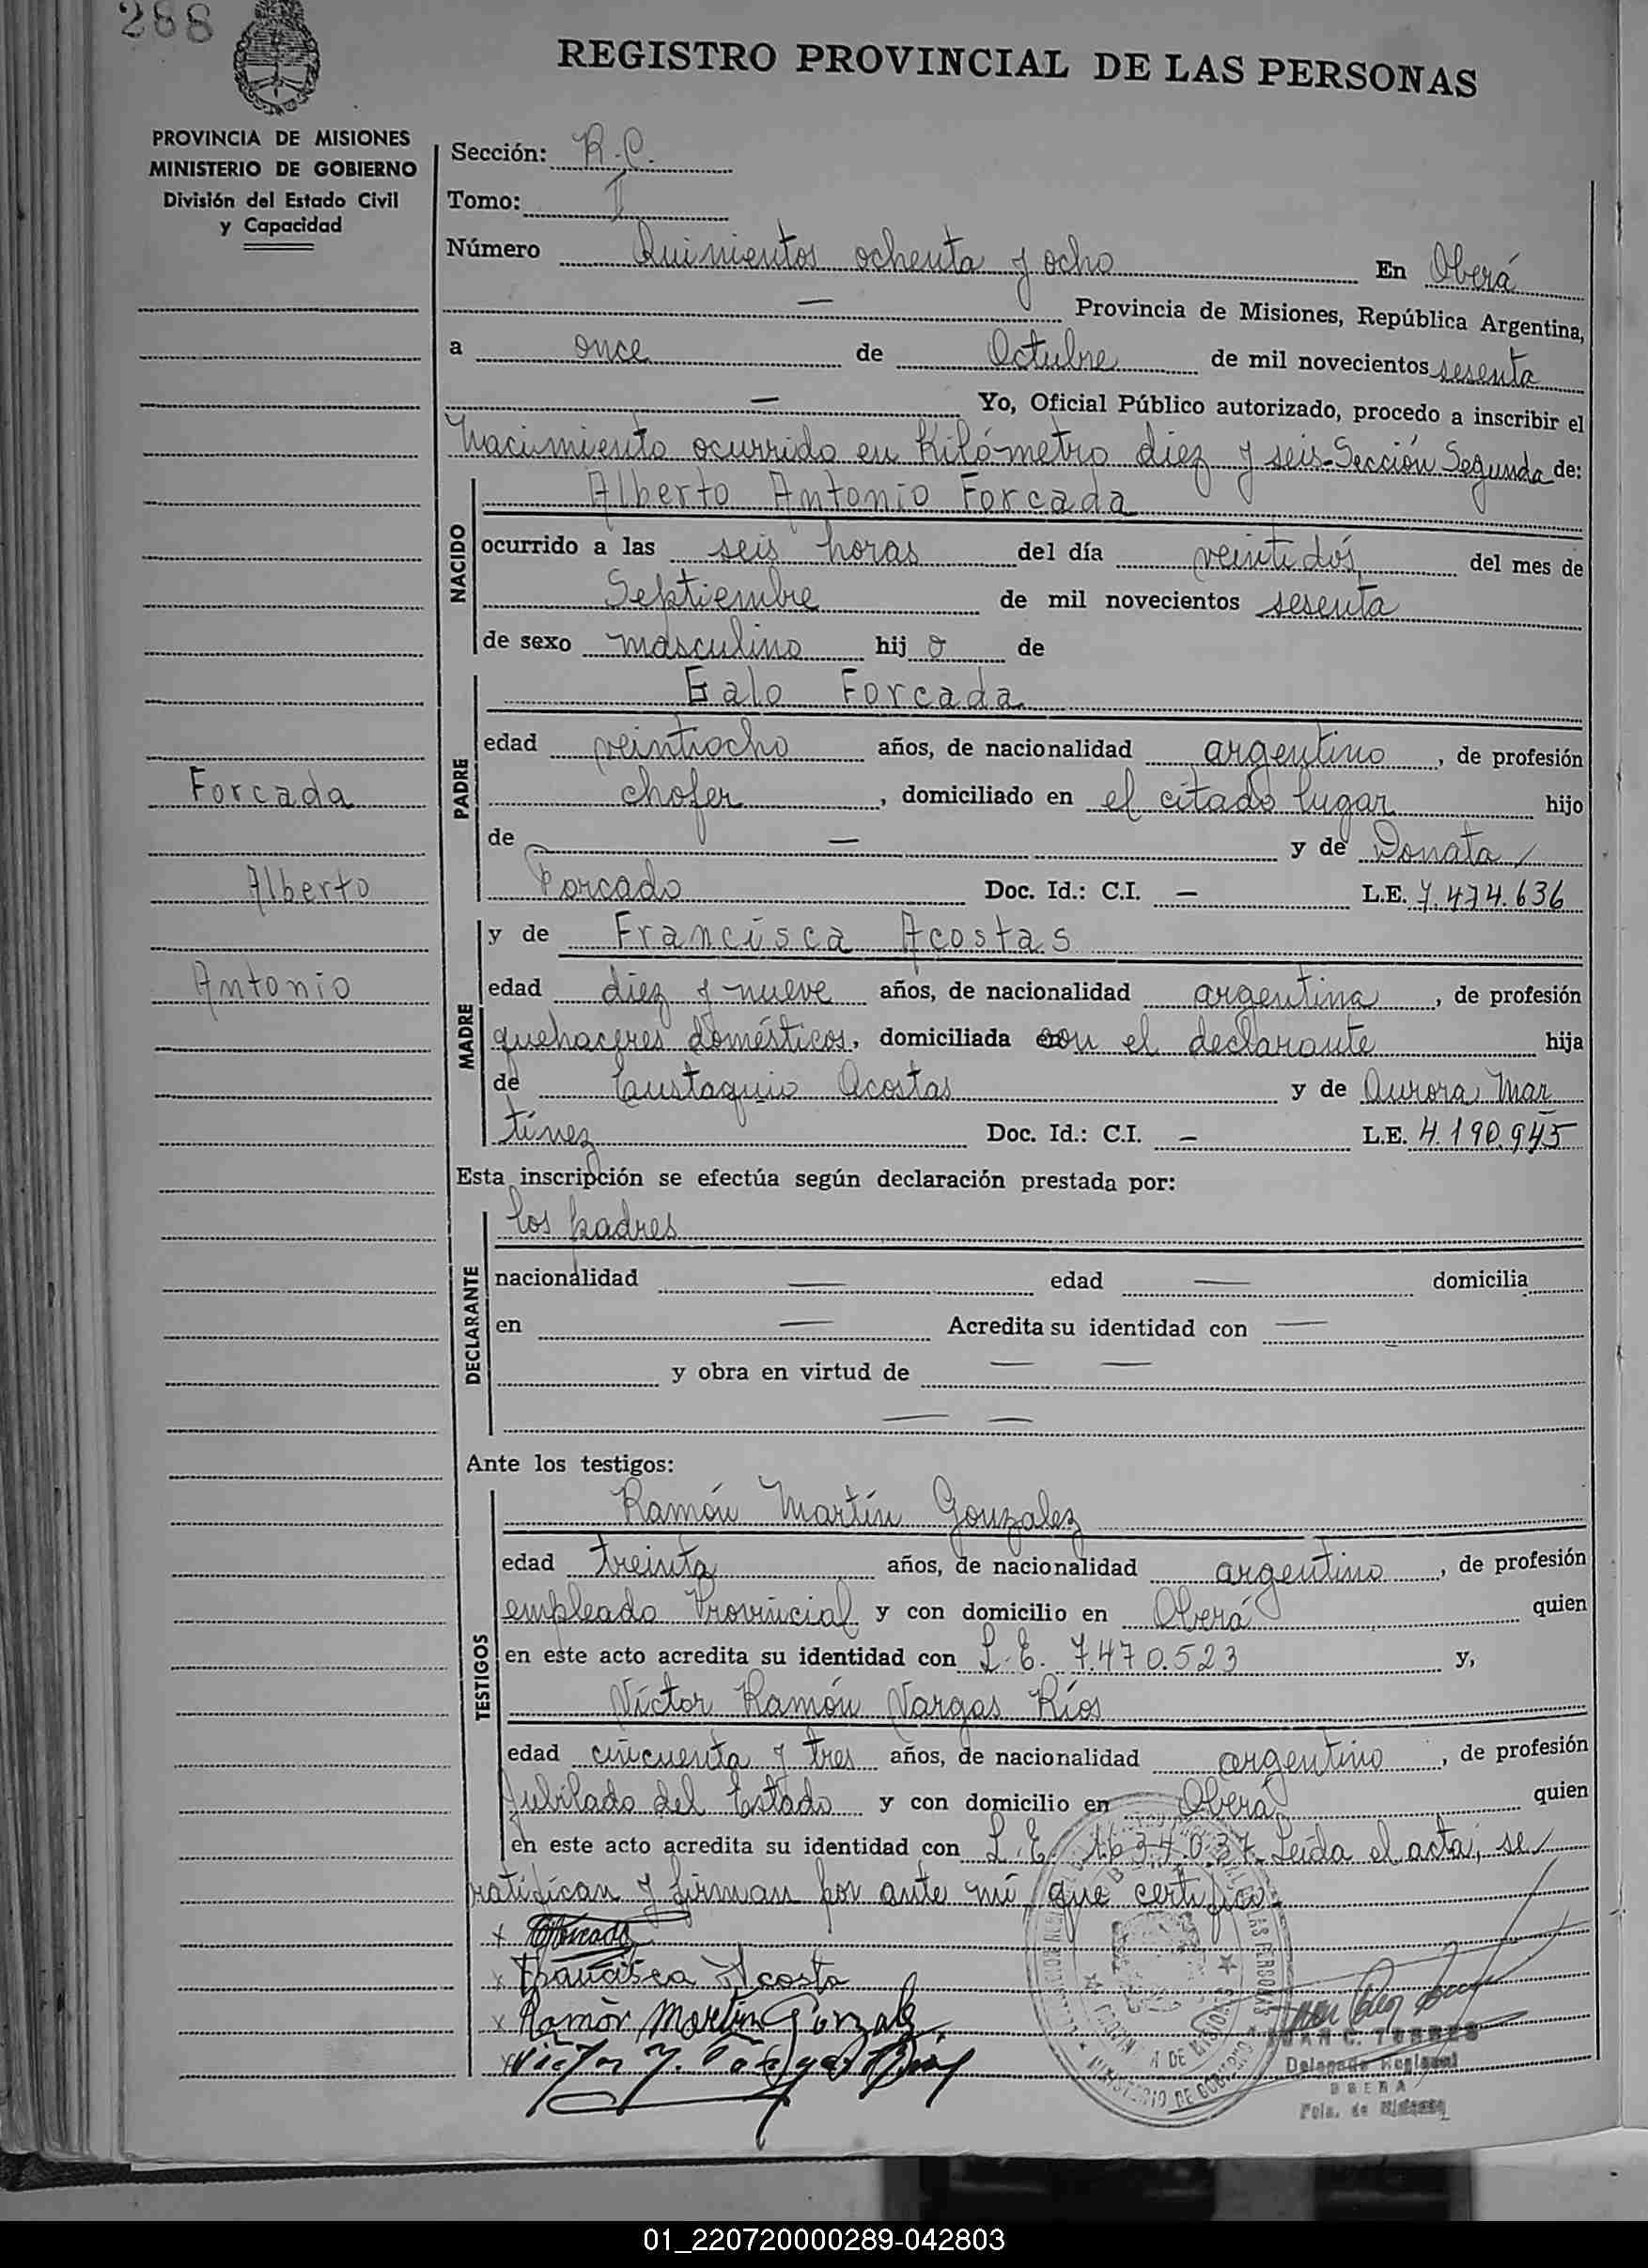 288
REGISTRO PROVINCIAL DE LAS PERSONAS
PROVINCIA DE MISIONES
MINISTERIO DE GOBIERNO
División del Estado Civil
y Capacidad
Sección: R.C.
Tomo: I
Número Quinientos ochenta y ocho En Oberá
— Provincia de Misiones, República Argentina,
a once de Octubre de mil novecientos sesenta
— Yo, Oficial Público autorizado, procedo a inscribir el
nacimiento ocurrido en Kilómetro diez y seis-Sección Segunda de:
NACIDO
Alberto Antonio Forcada
ocurrido a las seis horas del día veintidós del mes de
Septiembre de mil novecientos sesenta
de sexo masculino hijo de
PADRE
Galo Forcada
edad veintiocho años, de nacionalidad argentino, de profesión
chofer, domiciliado en el citado lugar hijo
de — y de Donata
Forcado Doc. Id.: C.I. — L.E. 7.474.636
Forcada
Alberto
Antonio
MADRE
y de Francisca Acostas
edad diez y nueve años, de nacionalidad argentina, de profesión
quehaceres domésticos, domiciliada con el declarante hija
de Eustaquio Acostas y de Aurora Mar
tínez Doc. Id.: C.I. — L.E. 4.190.945
Esta inscripción se efectúa según declaración prestada por:
DECLARANTE
los padres
nacionalidad — edad — domicilia
en — Acredita su identidad con —
y obra en virtud de — —
— —
Ante los testigos:
TESTIGOS
Ramón Martín Gonzalez
edad treinta años, de nacionalidad argentino, de profesión
empleado Provincial y con domicilio en Oberá quien
en este acto acredita su identidad con L.E. 7.470.523 y,
Víctor Ramón Vargas Ríos
edad cincuenta y tres años, de nacionalidad argentino, de profesión
Jubilado del Estado y con domicilio en Oberá quien
en este acto acredita su identidad con L.E. 1.634.037. Leída el acta, se
ratifican y firman por ante mí, que certifico.
x Forcada
x Francisca Acosta
x Ramón Martín Gonzalez
x Victor
JUAN C. TORRES
Delegado Regional
OBERA
Pcia. de Misiones
MINISTERIO DE GOBIERNO
01_220720000289-042803